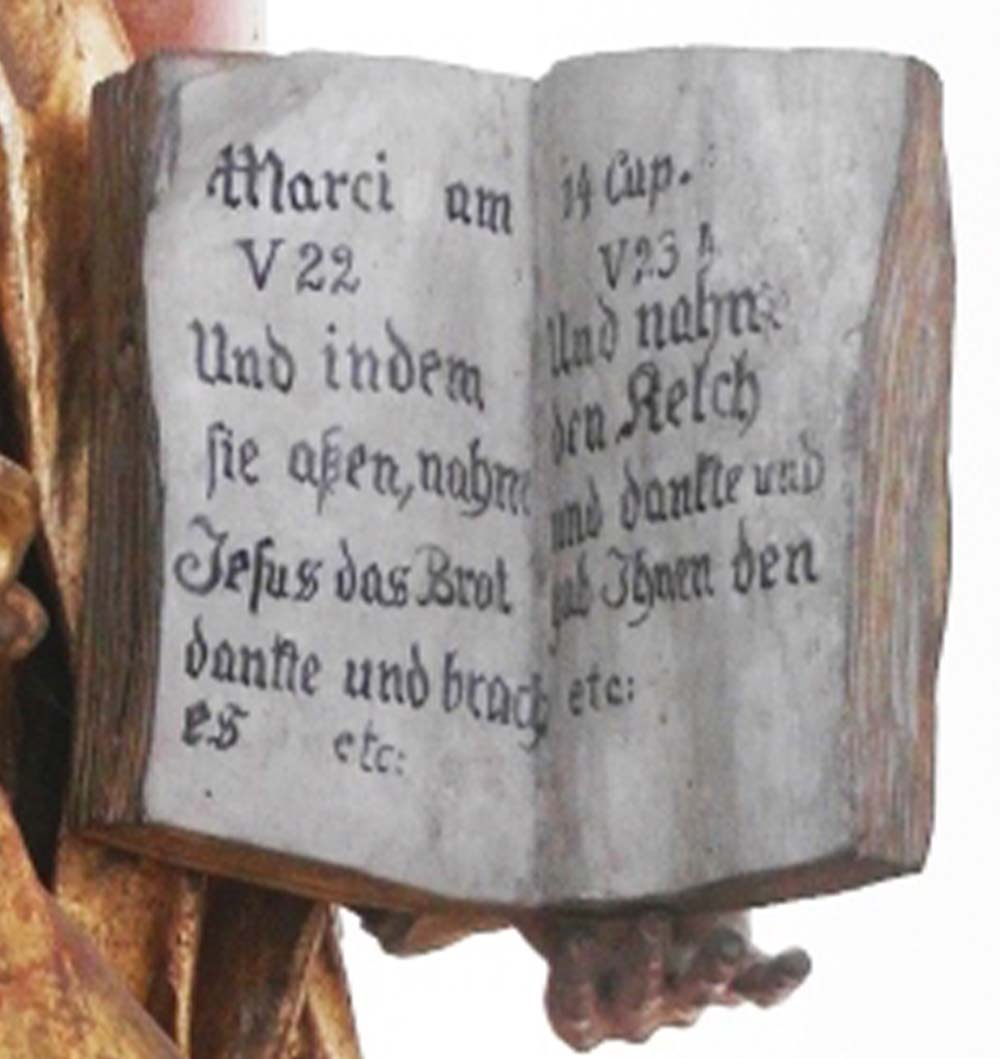 Marci am
V 22
Und indem
sie aßen, nahm
Jesus das Brot
dankte und brach
es etc:
14 Cap.
V 23
Und nahm
den Kelch
und dankte und
gab Ihnen den
etc: